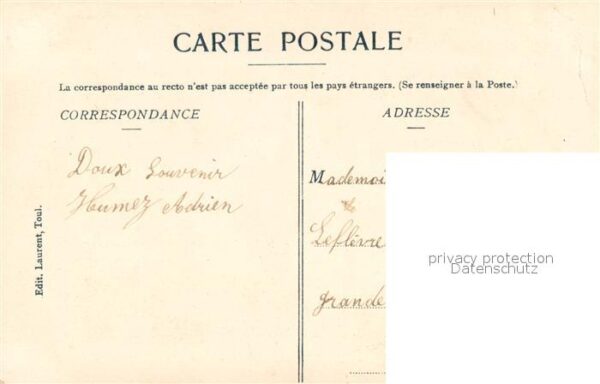 CARTE POSTALE
La correspondance au recto n'est pas acceptée par tous les pays étrangers. (Se renseigner à la Poste.)
CORRESPONDANCE
ADRESSE
Doux Souvenir
Humez Adrien
Edit. Laurent, Toul.
Mademoi
Lefèvre
grande
privacy protection
Datenschutz